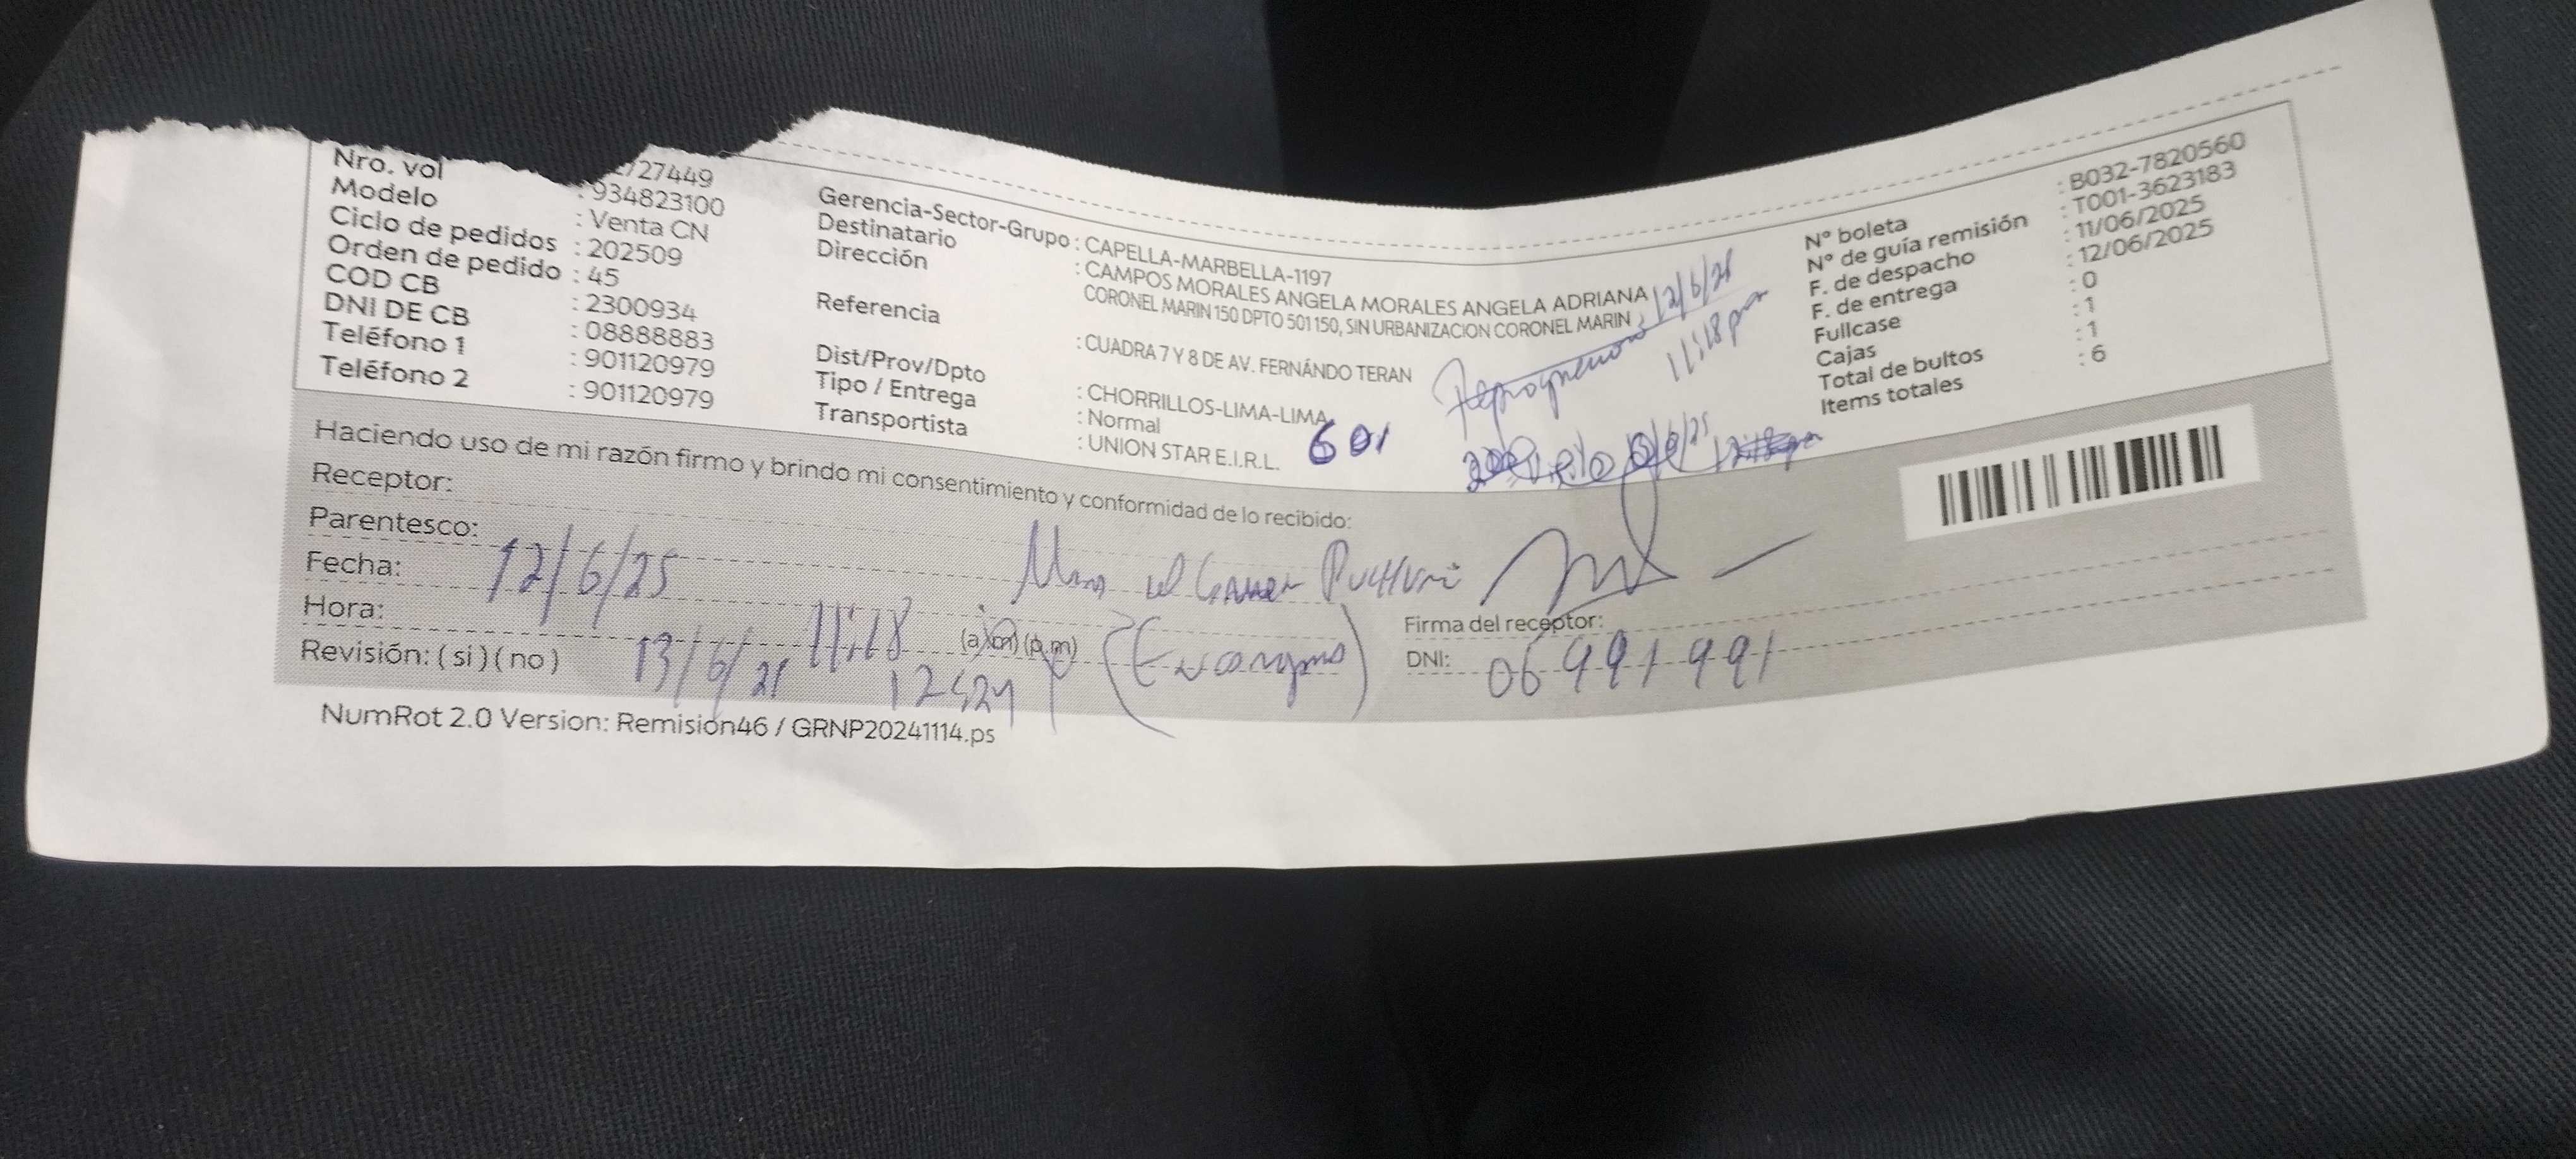 27449
Nro. vol : 934823100
Modelo : Venta CN
Ciclo de pedidos : 202509
Orden de pedido : 45
COD CB : 2300934
DNI DE CB : 08888883
Teléfono 1 : 901120979
Teléfono 2 : 901120979
Gerencia-Sector-Grupo : CAPELLA-MARBELLA-1197
Destinatario : CAMPOS MORALES ANGELA MORALES ANGELA ADRIANA
Dirección CORONEL MARIN 150 DPTO 501 150, SIN URBANIZACION CORONEL MARIN
Referencia : CUADRA 7 Y 8 DE AV. FERNÁNDO TERAN
Dist/Prov/Dpto : CHORRILLOS-LIMA-LIMA
Tipo / Entrega : Normal
Transportista : UNION STAR E.I.R.L.
601
12/6/25
11:18 pm
Nº boleta : B032-7820560
Nº de guía remisión : T001-3623183
F. de despacho : 11/06/2025
F. de entrega : 12/06/2025
Fullcase : 0
Cajas : 1
Total de bultos : 1
Items totales : 6
Haciendo uso de mi razón firmo y brindo mi consentimiento y conformidad de lo recibido:
Receptor:
Parentesco:
Fecha: 12/6/25
Hora: 11:18 (a.m) (p.m)
Revisión: ( si ) ( no ) 13/6/25
Firma del receptor:
DNI: 06991991
NumRot 2.0 Version: Remisión46 / GRNP20241114.ps